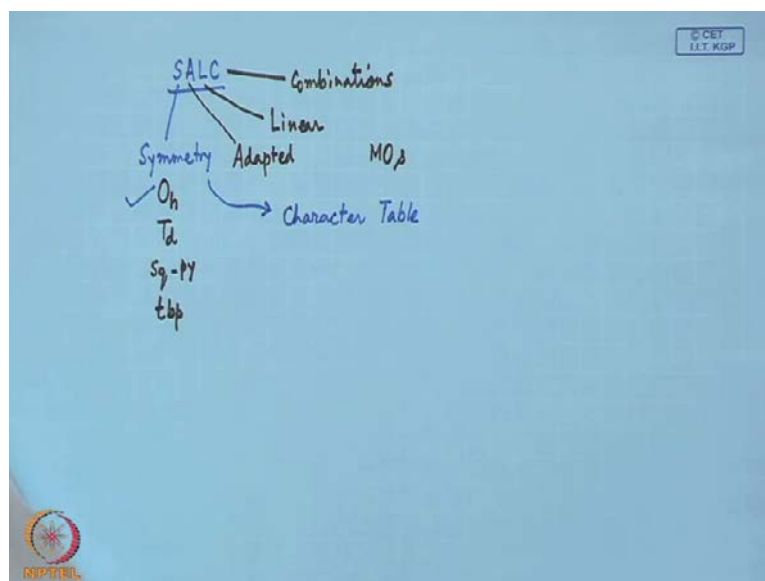 © CET
I.I.T. KGP
SALC
Combinations
Linear
Symmetry Adapted MOs
Oh
Character Table
Td
Sq-PY
tbp
NPTEL